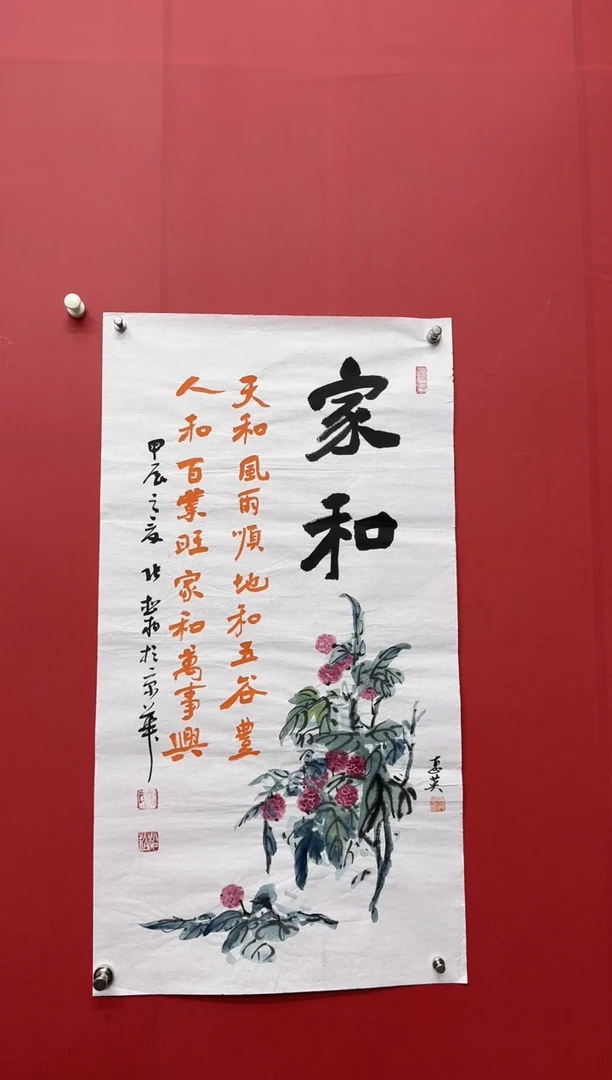 家和
天和風雨順地和五谷豐
人和百業旺家和萬事興
甲辰之夏 於京華
惠英